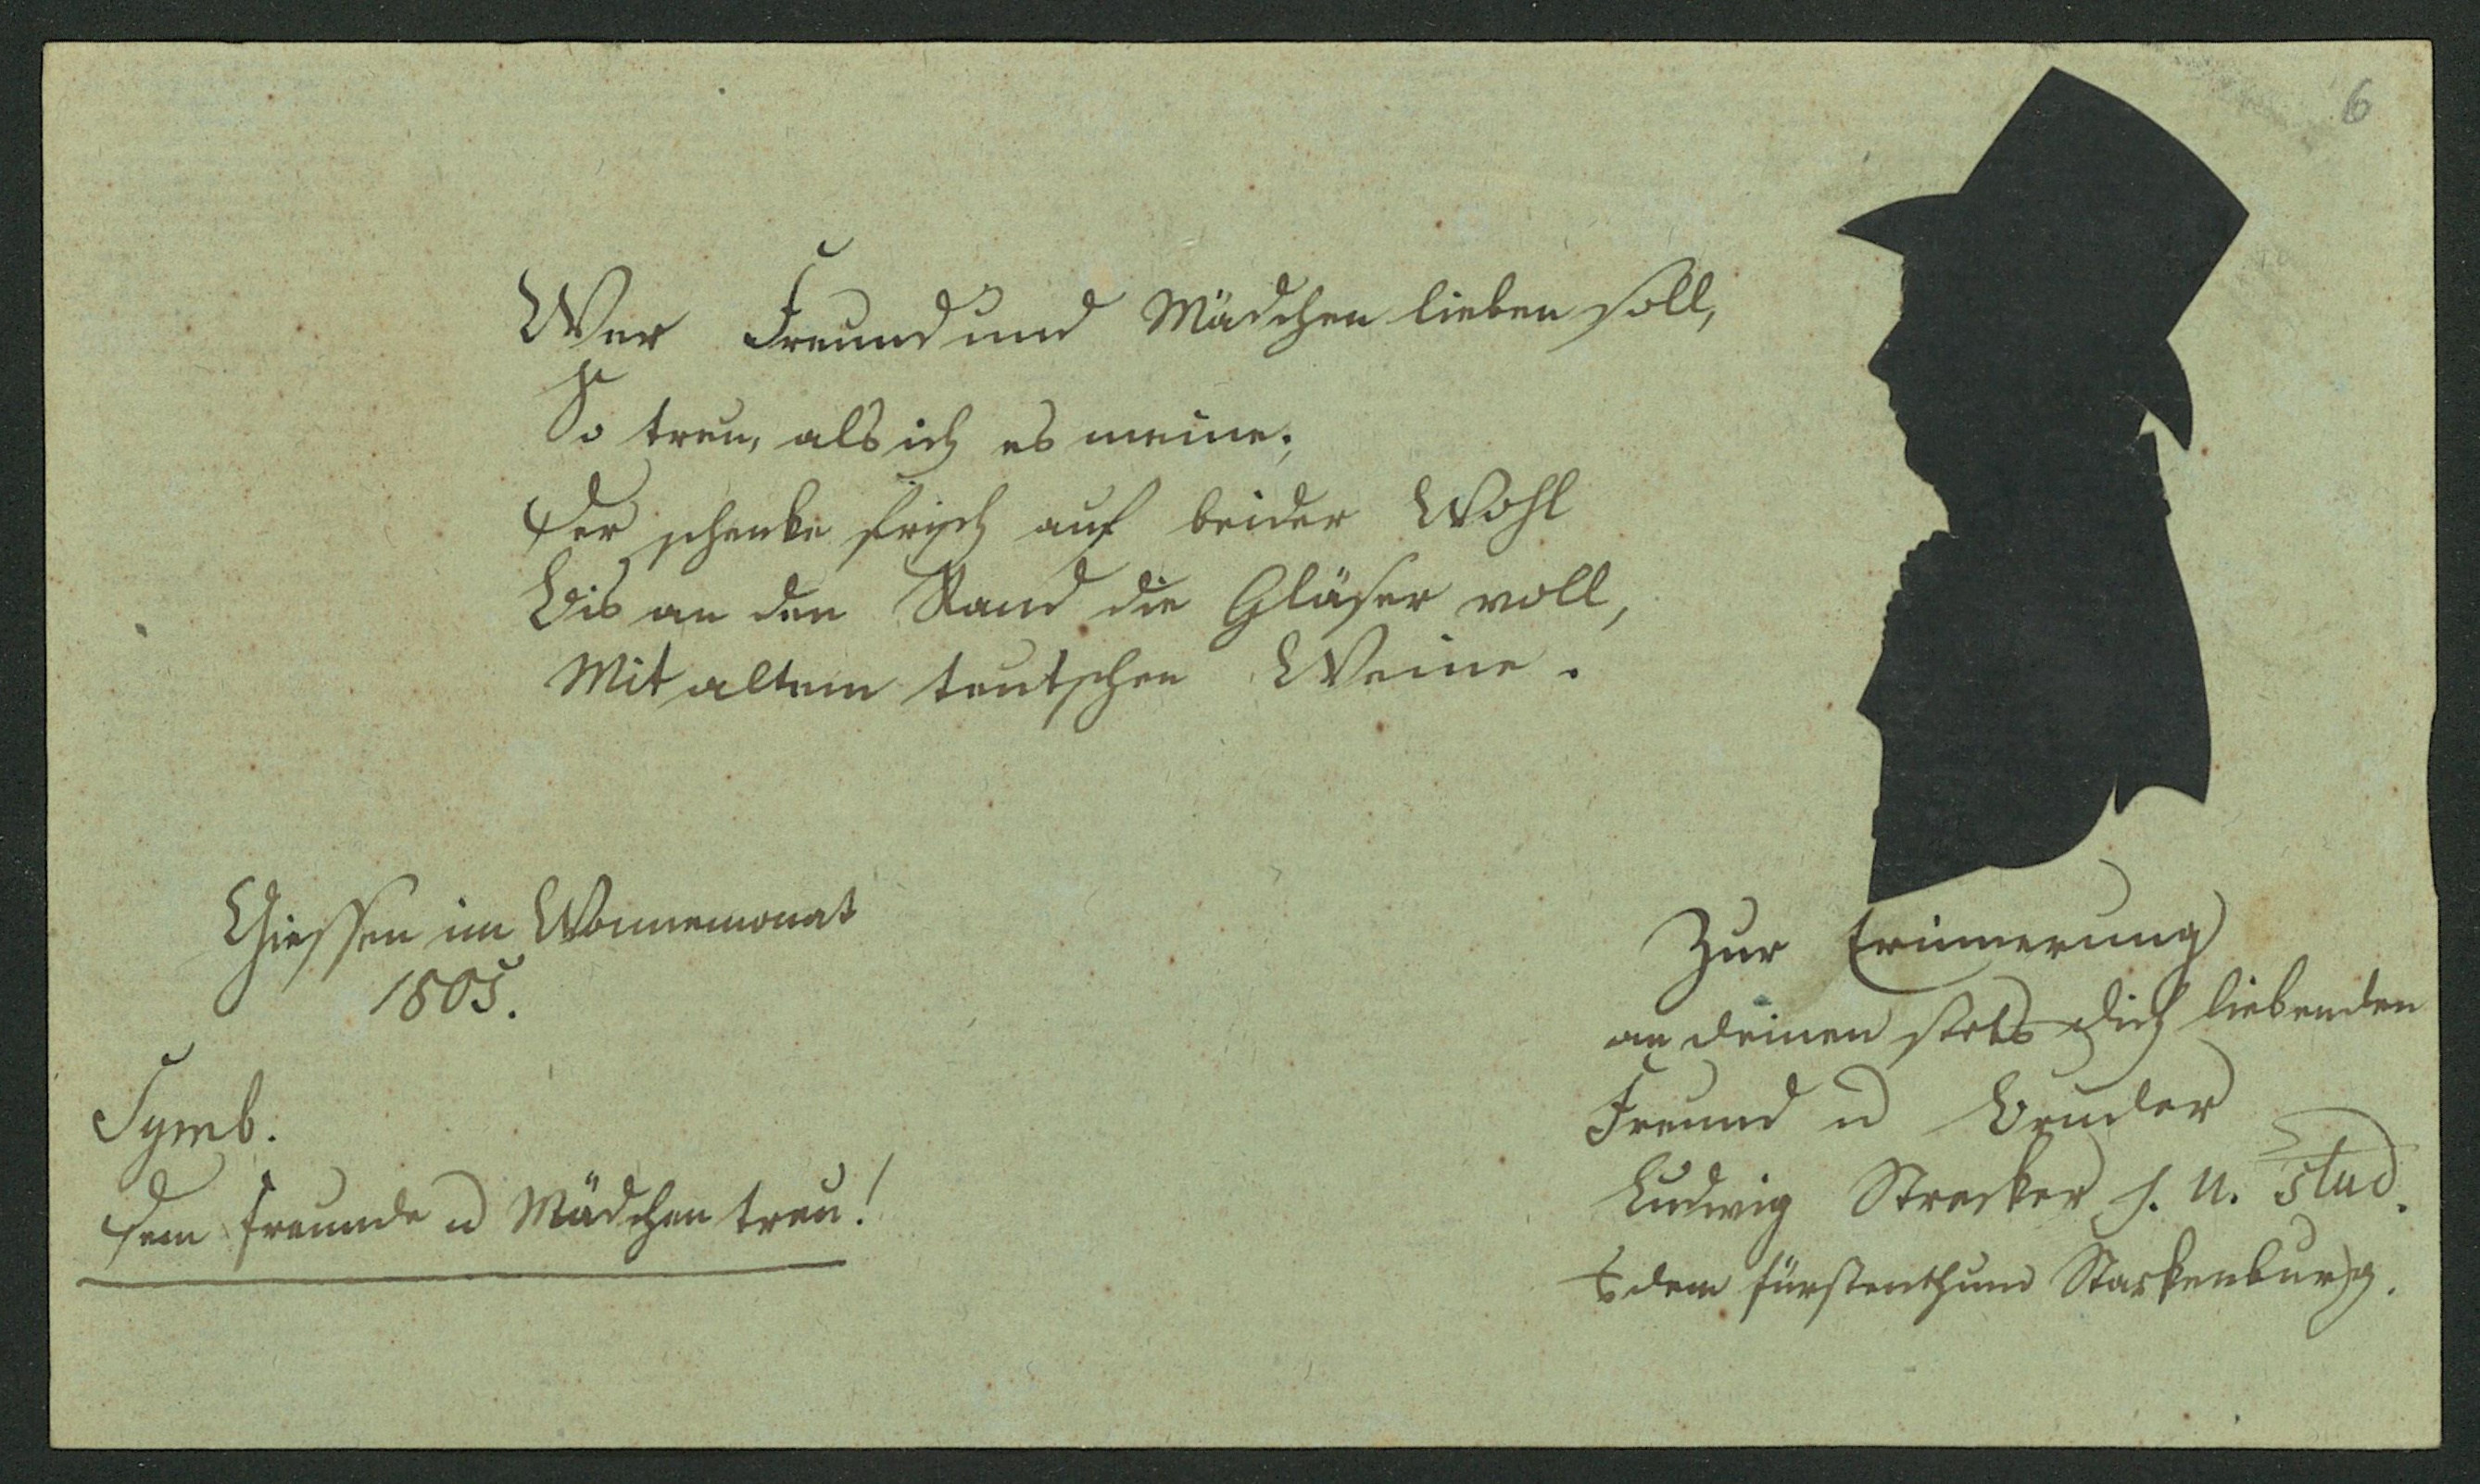 6
Wer Freund und Mädchen lieben soll,
So treu, als ich es meine;
Der schenke frisch auf beider Wohl
Bis an den Rand die Gläser voll,
Mit altem teutschen Weine.
Giessen im Wonnemonat
1805.
Symb.
Dem Freunde u Mädchen treu!
Zur Erinnerung
an deinen stets dich liebenden
Freund u Bruder
Ludwig Strecker J. U. Stud.
dem Fürstenthum Starkenburg.